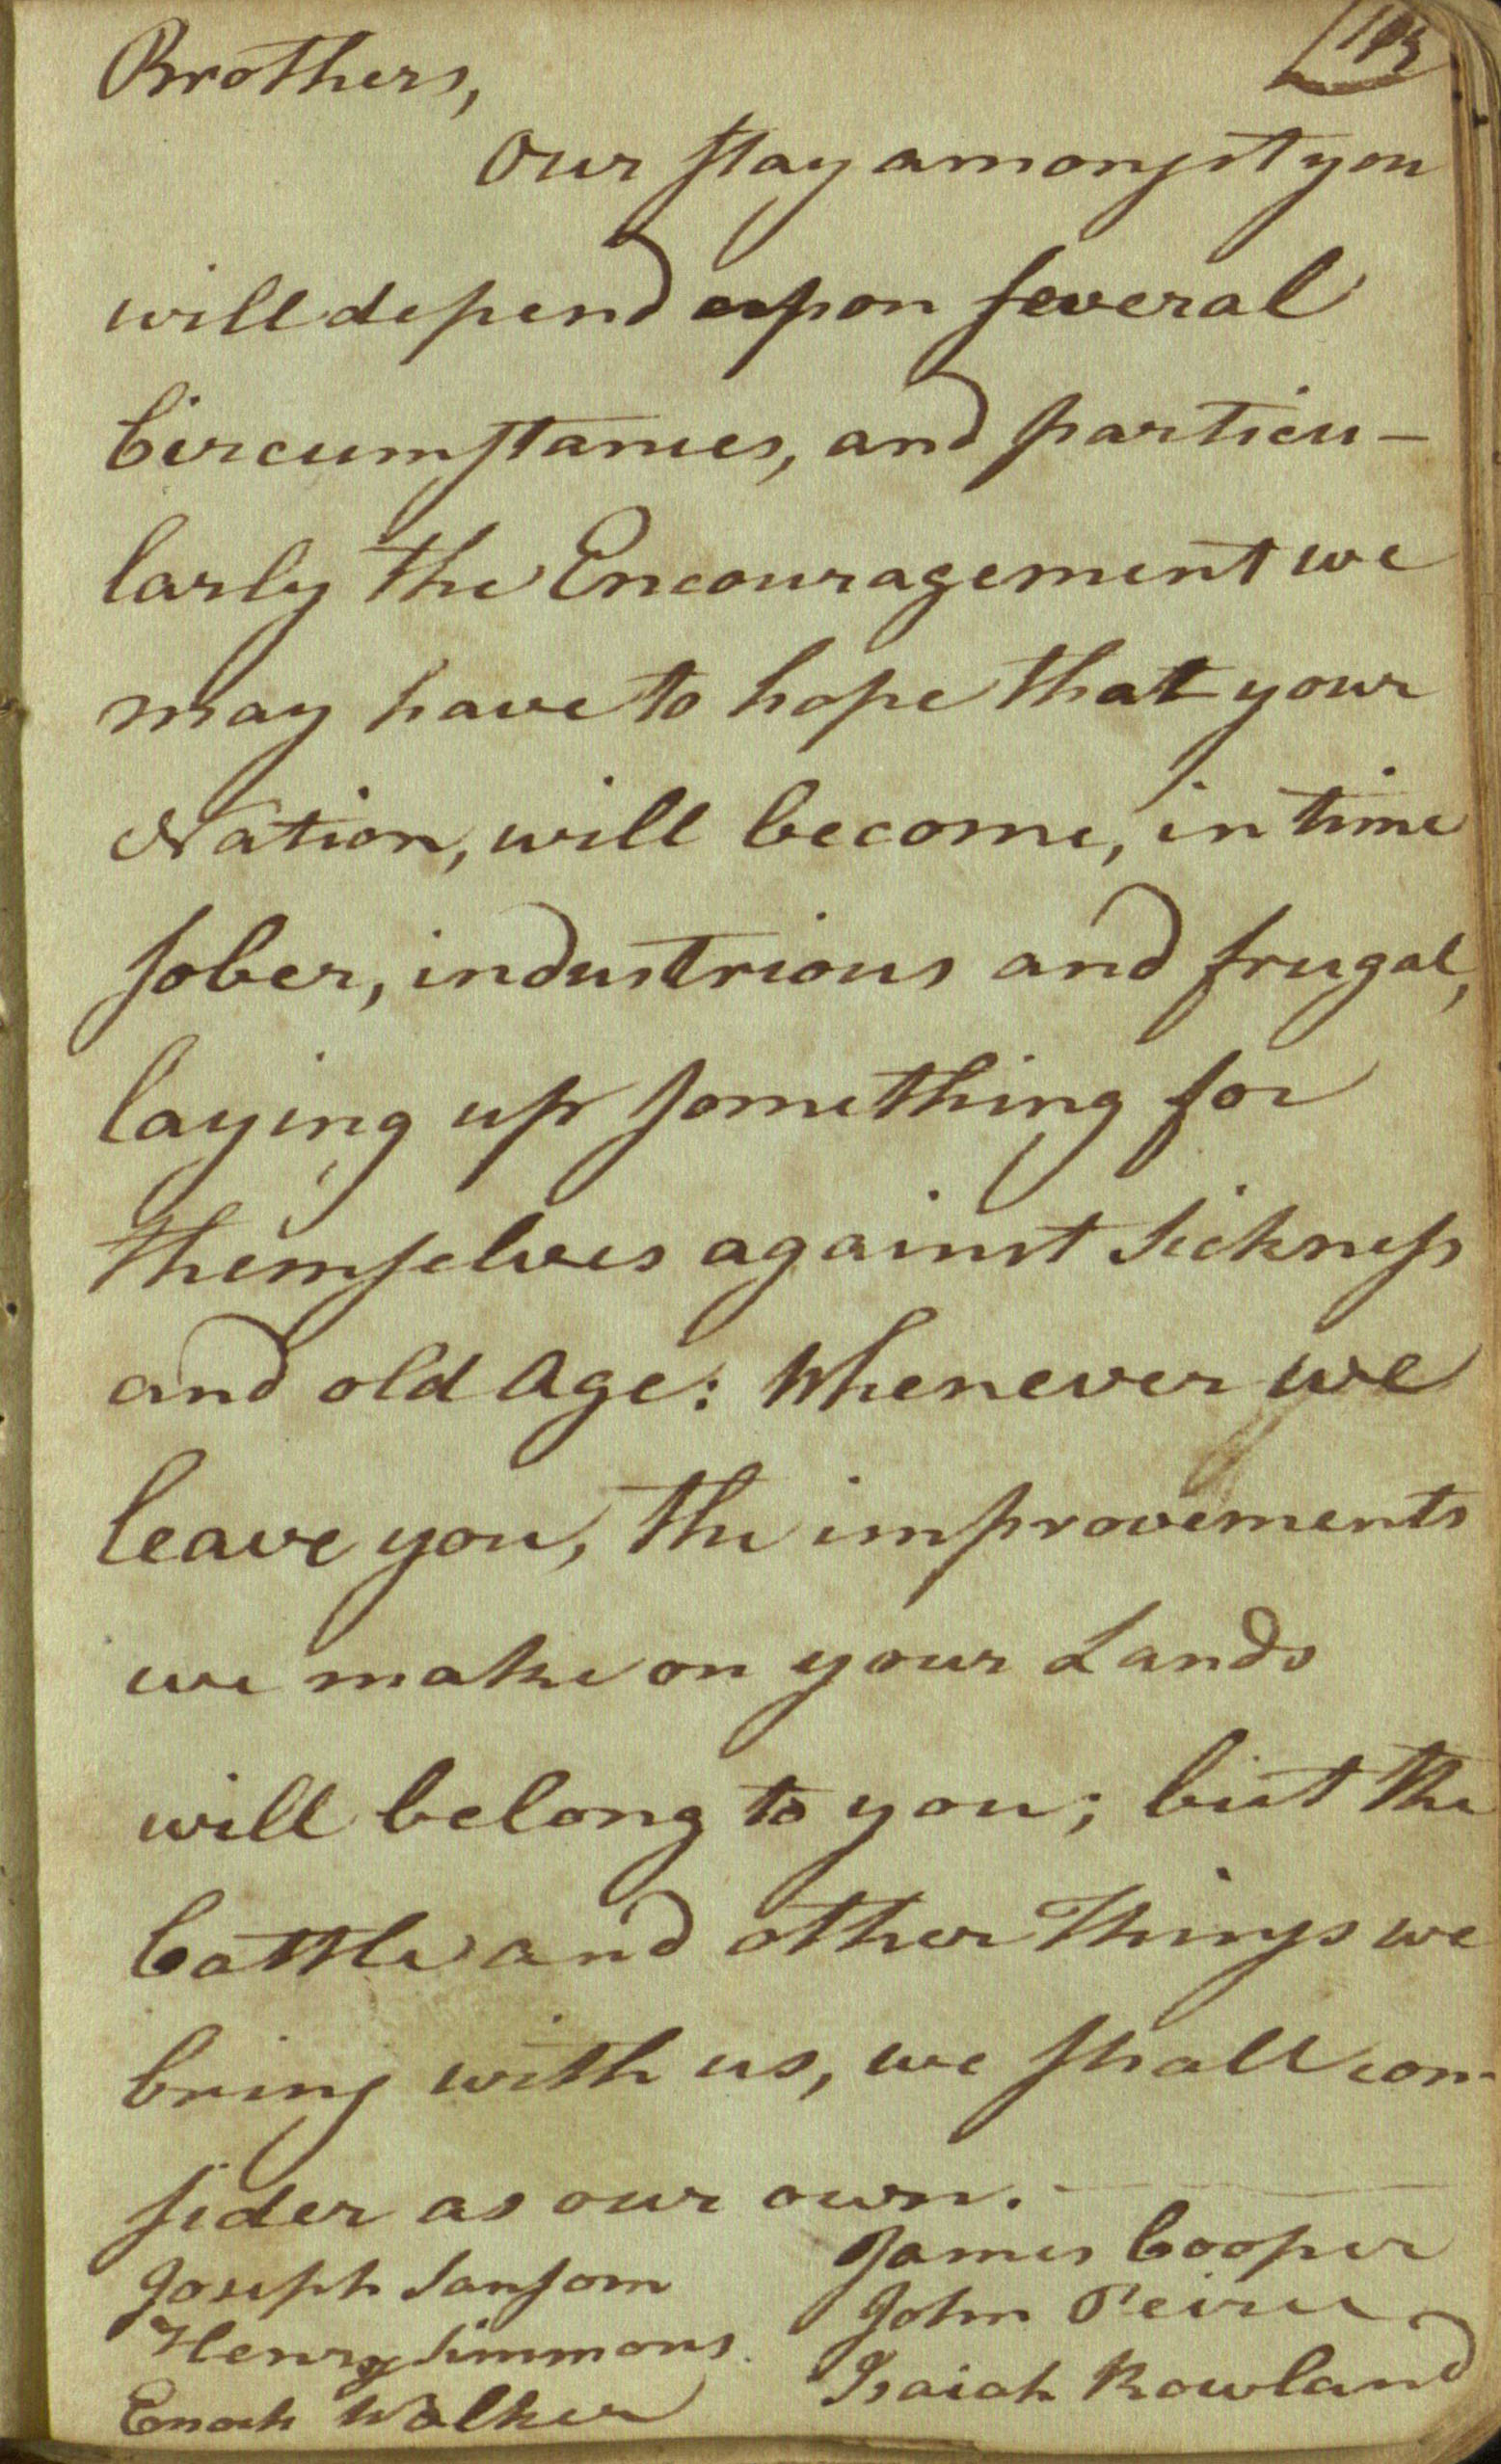 Brothers,
Our stay amongst you
will depend upon several
Circumstances, and particu-
larly the Encouragement we
may have to hope that your
Nation, will become, in time
sober, industrious and frugal,
laying up something for
themselves against Sickness
and old Age: Whenever we
leave you, the improvements
we make on your Lands
will belong to you; but the
Cattle and other Things we
bring with us, we shall con-
sider as our own.
James Cooper
Joseph Sansom
John Peirce
Henry Simmons.
Isaiah Rowland
Enoch Walker